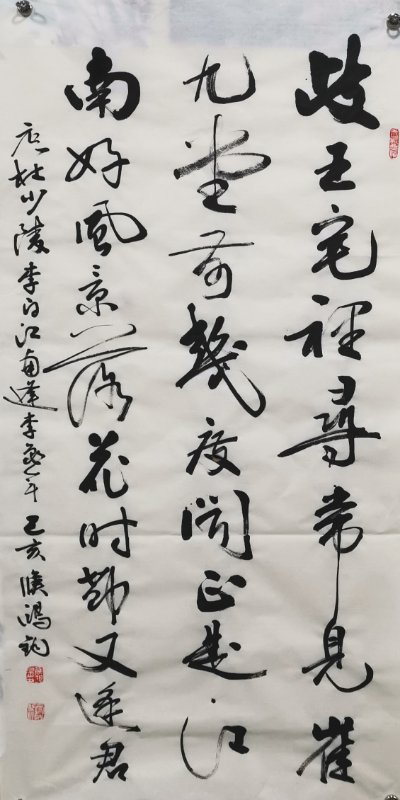 歧王宅裡尋常見崔
九堂前幾度聞正是江
南好風景落花时節又逢君
唐杜少陵李白江南逢李龜年 己亥 侯鴻鈞